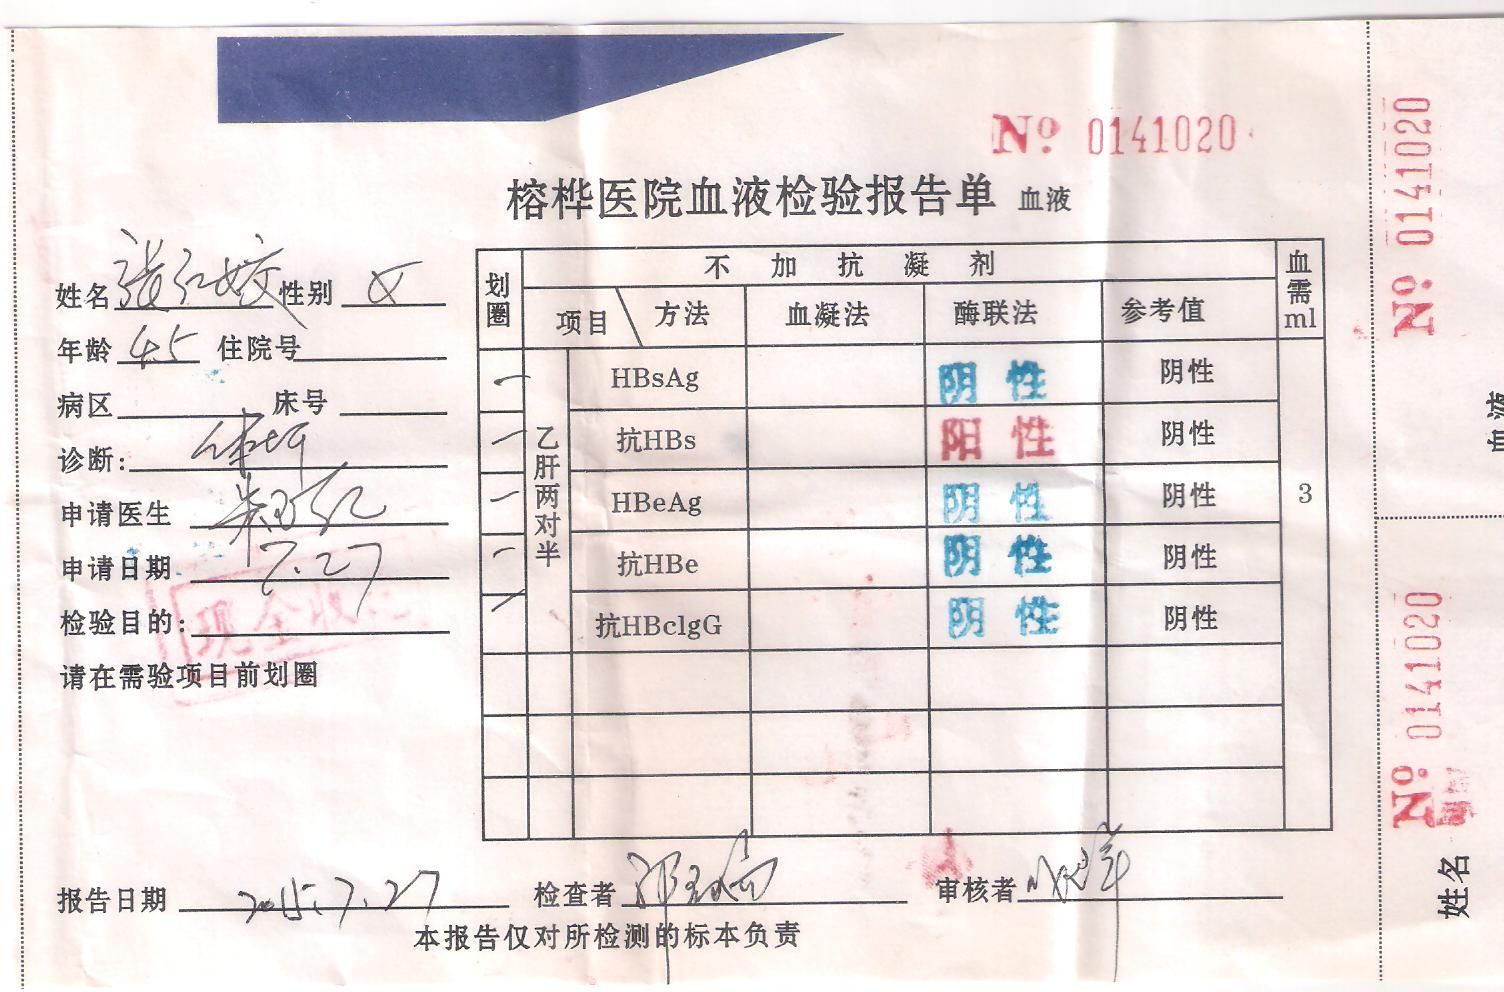 No 0141020
榕桦医院血液检验报告单 血液
姓名 张红姣 性别 女
年龄 45 住院号
病区 床号
诊断: 体检
申请医生
申请日期 7.27
检验目的:
现金收
请在需验项目前划圈
划圈 不加抗凝剂 血需ml
项目 方法 血凝法 酶联法 参考值
乙肝两对半
HBsAg 阴性 阴性
抗HBs 阳性 阴性
HBeAg 阴性 阴性 3
抗HBe 阴性 阴性
抗HBclgG 阴性 阴性
报告日期 2015.7.27 检查者 审核者
本报告仅对所检测的标本负责
No 0141020
血液
No 0141020
姓名